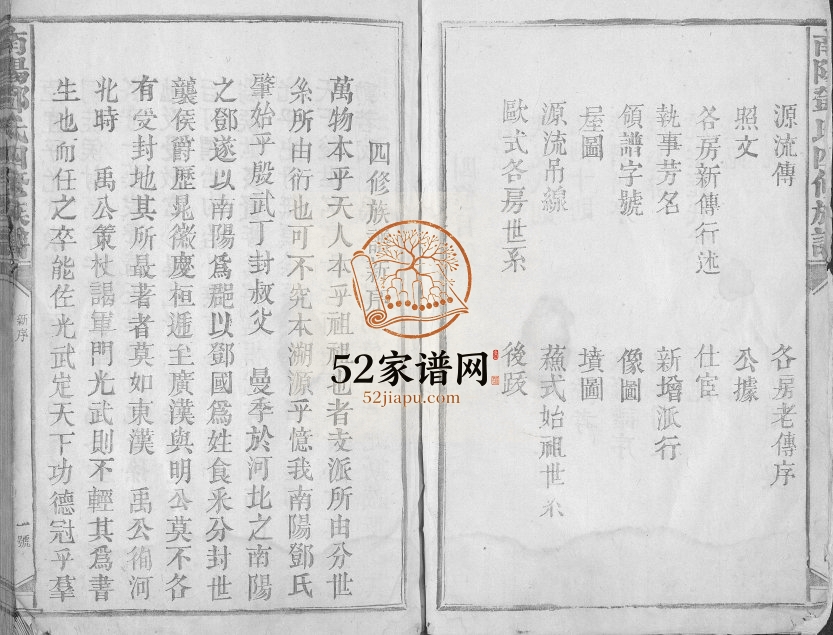 南陽鄧氏四修族譜
源流傳　各房老傳序
照文　公據
各房新傳行述　仕宦
執事芳名　新增派行
領譜字號　像圖
屋圖　墳圖
源流吊線　蘓式始祖世系
歐式各房世系　後跋
四修族譜新序
萬物本乎天人本乎祖祖也者支派所由分世
系所由衍也可不究本溯源乎憶我南陽鄧氏
肇始乎殷武丁封叔父　曼季於河北之南陽
之鄧遂以南陽爲郡以鄧國爲姓食采分封世
襲侯爵歷晁徽慶桓遞至廣漢與明公莫不各
有受封地其所最著者莫如東漢　禹公徇河
北時　禹公策杖謁軍門光武則不輕其爲書
生也而任之卒能佐光武定天下功德冠乎羣
南陽鄧氏四修族譜
新序
一號
52家谱网
52jiapu.com